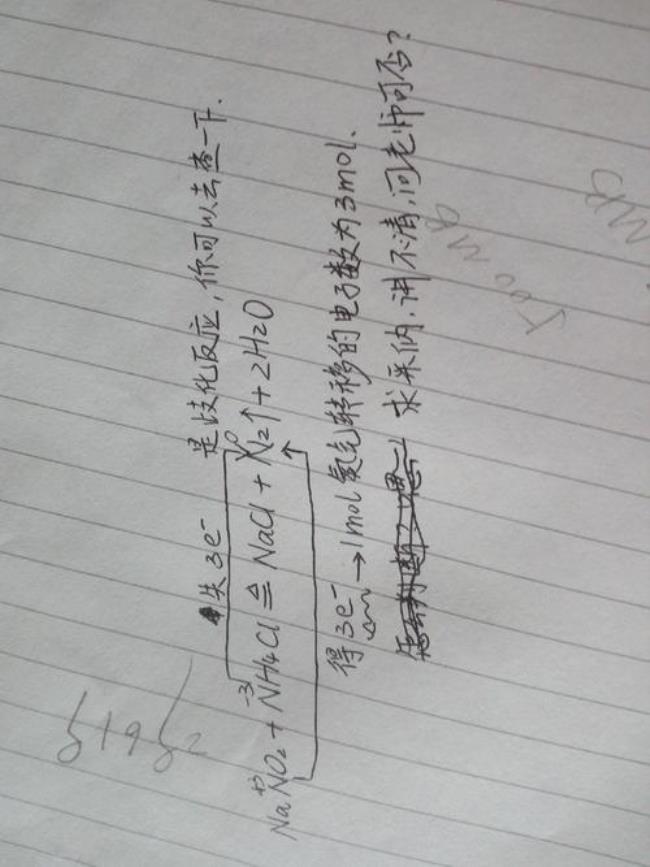 是歧化反应，你可以去查一下.
失3e⁻
+3 -3 0
NaNO₂ + NH₄Cl ≜ NaCl + N₂↑ + 2H₂O
得3e⁻ → 1mol氮气转移的电子数为3mol.
求采纳，讲不清，问老师可否？